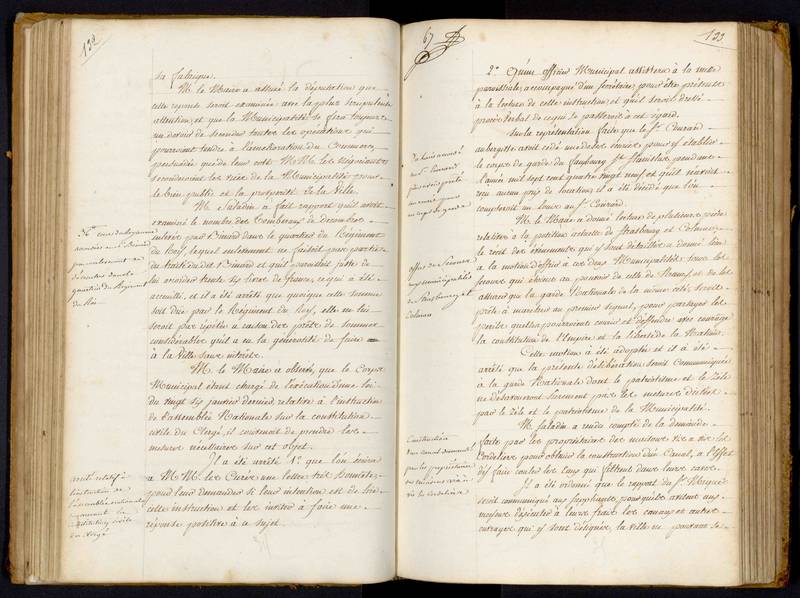 132
la fabrique.
M. le Maire a assuré la députation que
cette reponse seroit examinée avec la plus scrupuleuse
attention, et que la Municipalité se fera toujours
un devoir de seconder toutes les operations qui
pourroient tendre à l'amélioration du Commerce,
persuadée que de leur coté MM. les Négociants
seconderont les vües de la Municipalité pour
le bien public et la prosperité de la Ville.
M. Saladin a fait rapport qu'il avoit
examiné le nombre des tombereaux de décombres
du Roy, lequel enlevement ne faisoit pas partie
du traité dudit Simard et qu'il paroissoit juste de
lui accorder trente six livres de france, ce qui a été
accueilli, et il a été arrêté que quoique cette somme
soit due par le Régiment du Roy, elle ne lui
seroit pas repétée a raison des prêts de sommes
considérables qu'il a eu la générosité de faire
à la Ville sans intérêts.
M. le Maire a observé, que le Corps
Municipal étant chargé de l'exécution d'une loi
du vingt six janvier dernier, relative à l'instruction
de l'assemblée Nationale sur la constitution
civile du Clergé, il convenoit de prendre les
mesures nécessaires sur cet objet.
Il a été arrêté 1° que l'on écrira
a MM. les Curés une lettre très honnête
pour leur demander si leur intention est de lire
cette instruction et les inviter à faire une
réponse positive à ce sujet.
quartier du Régiment
du Roi
arrêté relatif à
l'instruction de
l'assemblée nationale
concernant la
constitution civile
du clergé
67
133
2° Qu'un officier Municipal assistera à la messe
paroissiale, accompagné d'un secrétaire, pour être présent
à la lecture de cette instruction, et qu'il sera dressé
procès verbal de ce qui se passeroit à cet égard.
Sur la représentation faite que le Sr. Conrard
aubergiste avoit cédé une de ses ecuries pour y établir
le corps de garde du faubourg St. Stanislas pendant
l'année mil sept cent quatre vingt neuf, et qu'il n'avoit
reçu aucun pays de location, il a été décidé que l'on
compteroit un louis au Sr. Conrard.
M. le Maire a donné lecture de plusieurs pieces
relatives à la position actuelle de Strasbourg et Colmar,
le recit des évenements qui y sont détaillés a donné lieu
à la motion d'offrir à ces deux Municipalités tous les
secours qui étoient au pouvoir de celle de Nancy, et de les
assurer que la garde Nationale de la même cité, seroit
prête à marcher au premier signal, pour partager les
perils qu'elles pourroient courir et deffendre avec courage
la constitution de l'Empire et la liberté de la Nation.
Cette motion a été adoptée et il a été
arrêté que la presente déliberation seroit Communiquée
à la garde Nationale dont le patriotisme et le zèle
ne désavoueront surement pas les mesures dictées
par le zèle et le patriotisme de la Municipalité.
M. Saladin a rendu compte de la demande
faite par les propriétaires des maisons vis a vis les
Cordeliers pour obtenir la construction d'un Canal, à l'effet
d'y faire couler les eaux qui filtrent dans leurs caves.
Il a été ordonné que le rapport du Sr. Mique
seroit communiqué aux suppliants pour qu'ils avisent aux
moyens d'exécuter à leurs frais les canaux et autres
ouvrages qui y sont désignés, la Ville ne pouvant se
Un louis accordé
au Sr. Conrard
offres de secours
aux municipalités
de Strasbourg et
Colmar
Construction
d'un canal demandé
par les propriétaires
des maisons vis à
vis les Cordeliers